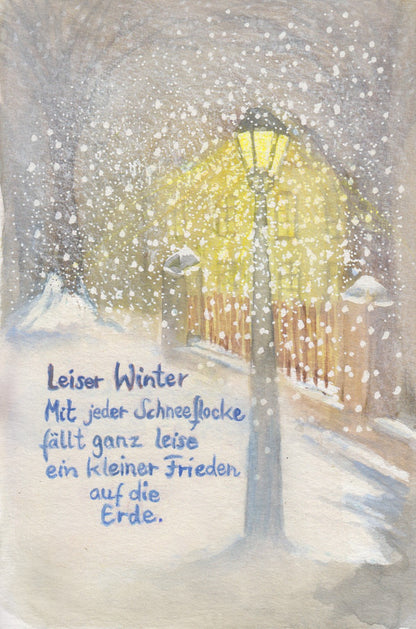 Leiser Winter
Mit jeder Schneeflocke
fällt ganz leise
ein kleiner Frieden
auf die
Erde.